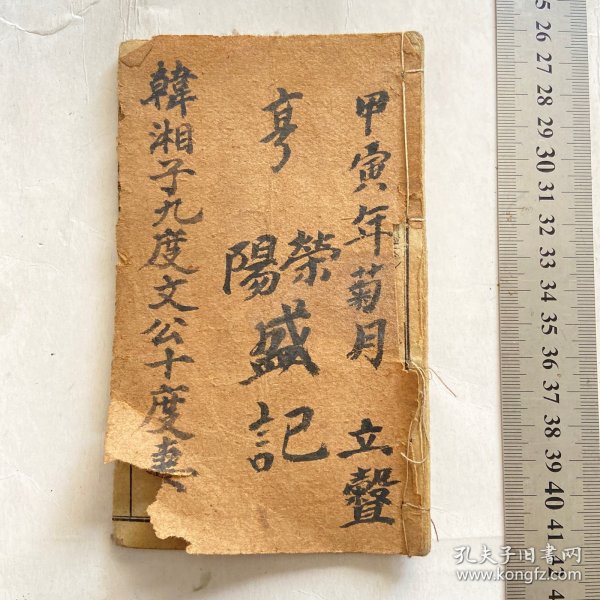 甲寅年菊月 立聲
亨
榮陽
盛記
韓湘子九度文公十度妻
25 26 27 28 29 30 31 32 33 34 35 36 37 38 39 40 41 42
孔夫子旧书网
www.kongfz.com